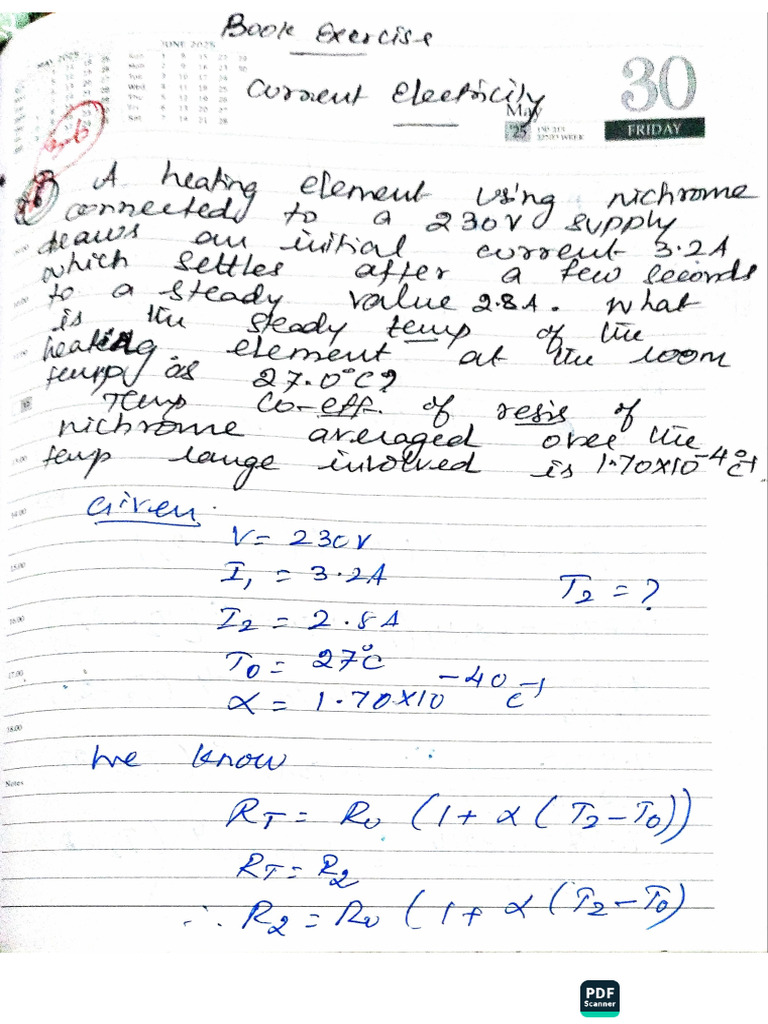 Book Exercise
JUNE 2025
MAY 2025
Current Electricity
30
May
'25
22ND WEEK
FRIDAY
A heating element using nichrome
connected to a 230V supply
draws an initial current 3.2A
which settles after a few seconds
to a steady value 2.8A. What
is the steady temp of the
heating element at the room
temp as 27.0°C?
Temp Co-eff. of resis of
nichrome averaged over the
temp range involved is 1.70×10⁻⁴°C⁻¹
Given
14.00
V = 230V
15.00
I₁ = 3.2A
T₂ = ?
16.00
I₂ = 2.8A
T₀ = 27°C
17.00
α = 1.70×10⁻⁴°C⁻¹
18.00
We know
Notes
R_T = R₀ (1 + α (T₂ – T₀))
R_T = R₂
∴ R₂ = R₀ (1 + α (T₂ – T₀)
PDF
Scanner